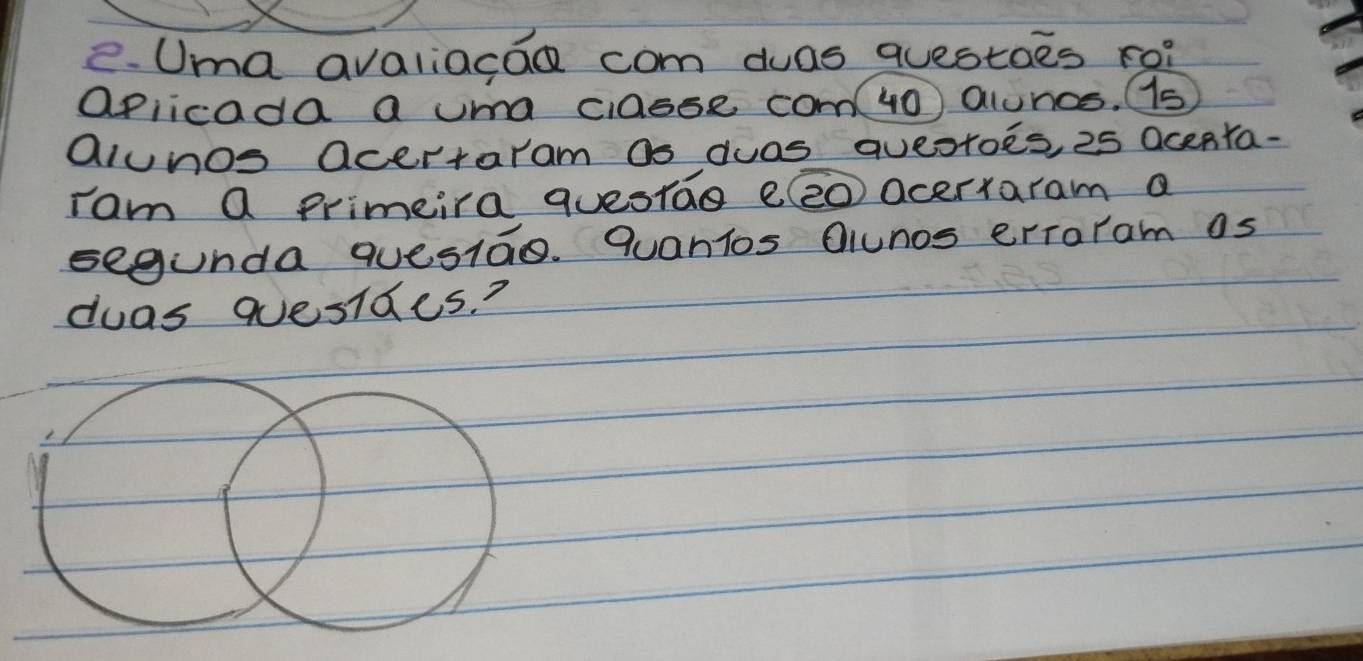 2. Uma avaliação com duas questões foi
aplicada a uma classe com 40 alunos. 15
alunos acertaram as duas questões, 25 acerta-
ram a primeira questão e 20 acertaram a
segunda questão. Quantos alunos erraram as
duas questões?